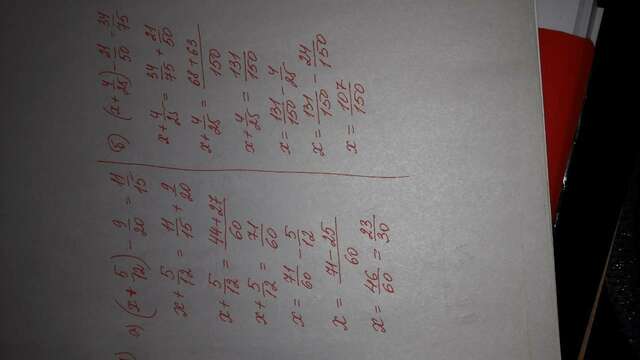 1) а) (x + 5/12) - 9/20 = 11/15
x + 5/12 = 11/15 + 9/20
x + 5/12 = 44+27/60
x + 5/12 = 71/60
x = 71/60 - 5/12
x = 71-25/60
x = 46/60 = 23/30
б) (x + 4/25) - 21/50 = 34/75
x + 4/25 = 34/75 + 21/50
x + 4/25 = 68+63/150
x + 4/25 = 131/150
x = 131/150 - 4/25
x = 131/150 - 24/150
x = 107/150